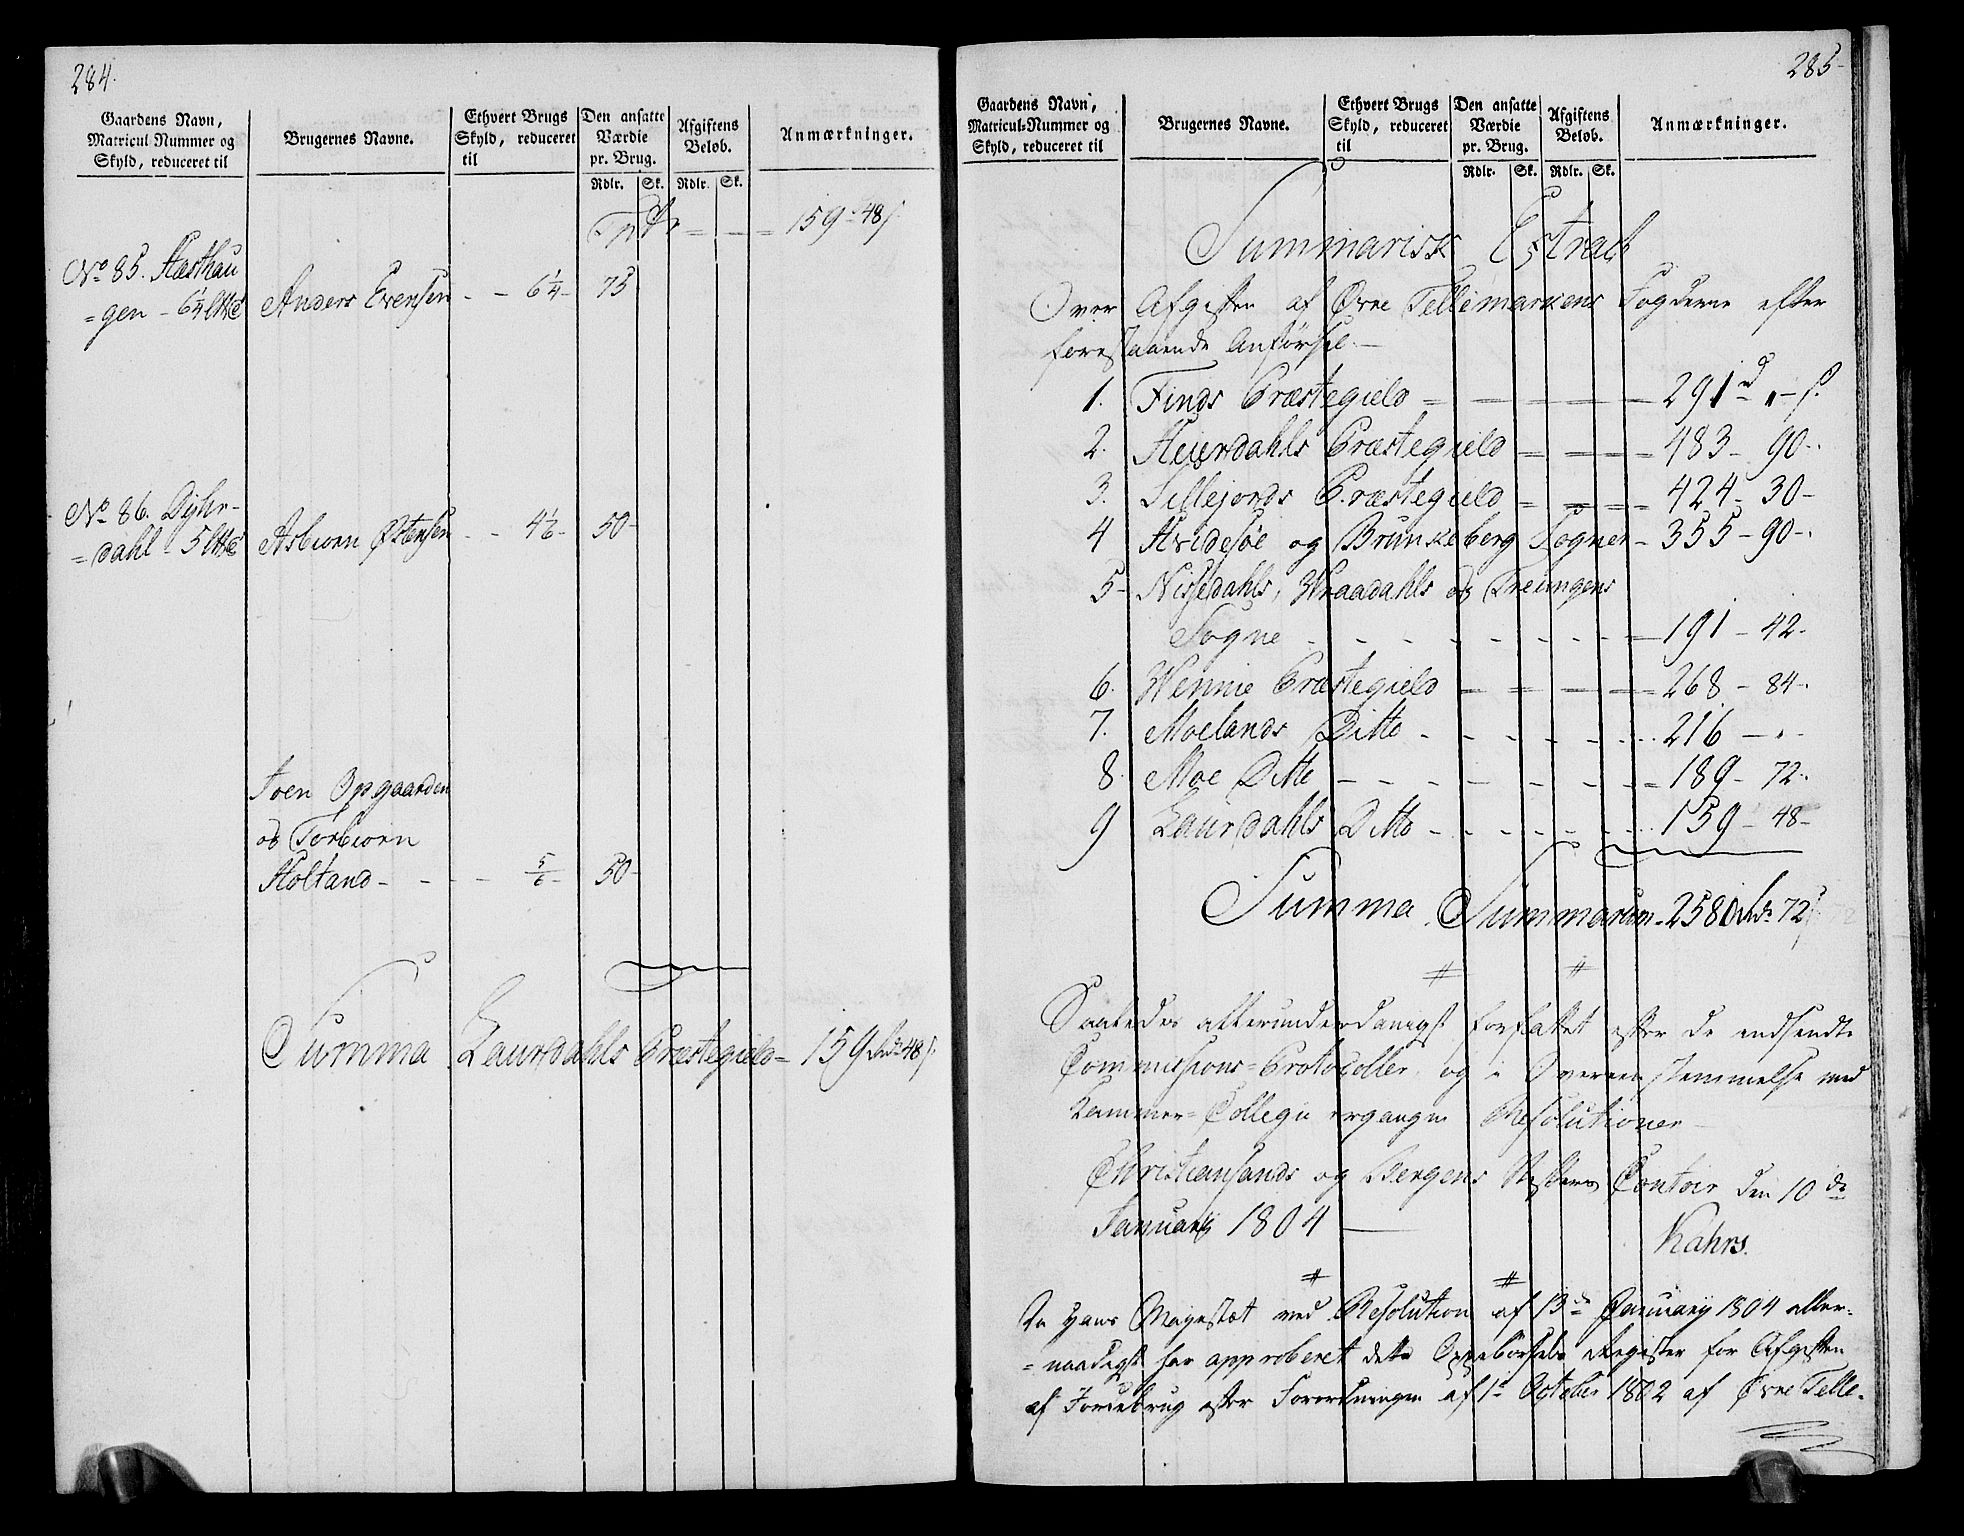 284.
Gaardens Navn,
Matricul Nummer og
Skyld, reduceret til
Brugernes Navne.
Ethvert Brugs
Skyld, reduceret
til
Den ansatte
Værdie
pr. Brug.
Rdlr. Sk.
Afgiftens
Beløb.
Rdlr. Sk.
Anmærkninger.
159 - 48 s.
No 85. Hæsthau
=gen - 6¼
Anders Evensen - - 6¼ - 75
No 86. Dyhr-
=dahl - 5
Asbiorn Østensen - - 4⅙ - 50 -
Joen Opgaarden
og Torbiorn
Holtand - - - - 5/6 - 50 -
Summa Laurdahls Præstegield = 159 rd 48 s.
285
Gaardens Navn,
Matricul-Nummer og
Skyld, reduceret til
Brugernes Navne.
Ethvert Brugs
Skyld, reduceret
til
Den ansatte
Værdie
pr. Brug.
Rdlr. Sk.
Afgiftens
Beløb.
Rdlr. Sk.
Anmærkninger.
Summarisk Extract
Over Afgiften af Øvre Tellemarkens Fogderie efter
forestaaende Anførsel. -
1. Tinds Præstegield = - - - 291 rd " - s.
2. Heierdahls Præstegield = = = 483 - 90 -
3. Sillejords Præstegield = = = 424 - 30 -
4 Hvidesøe og Brunkeberg Sogner - 355 - 90 -
5 - Nissedahls, Wraadahls og Treungens
Sogne - - - - - - 191 - 42 -
6. Wennie Præstegield - = - - 268 - 84 -
7. Moelands Ditto - - - - - 216 - " -
8 Moe Ditto - - - - - 189 - 72 -
9 Laurdahls Ditto - - - - 159 - 48 -
Summa Summarum - 2580 rd 72 s
Saaledes allerunderdanigst forfattet efter de indsendte
Commissions=Protocoller, og i Overeensstemmelse med
Kammer=Collegii ergangne Resolutioner
Christiansands og Bergens Stifters Contoir den 10de
Januarii 1804
Kahrs.
Da Hans Majestæt ved Resolution af 13de Januarii 1804 aller-
=naadigst har approberet dette Oppebørsels Register for Afgiften
af Jordebrug efter Forordningen af 1te October 1802 af Øvre Telle-